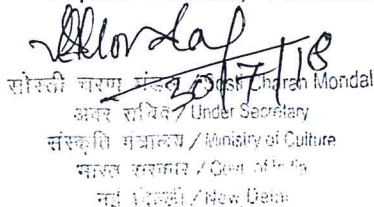 30/7/18
चरण मंडल / Charan Mondal
अवर सचिव / Under Secretary
संस्कृति मंत्रालय / Ministry of Culture
भारत सरकार / Govt. of India
नई दिल्ली / New Delhi